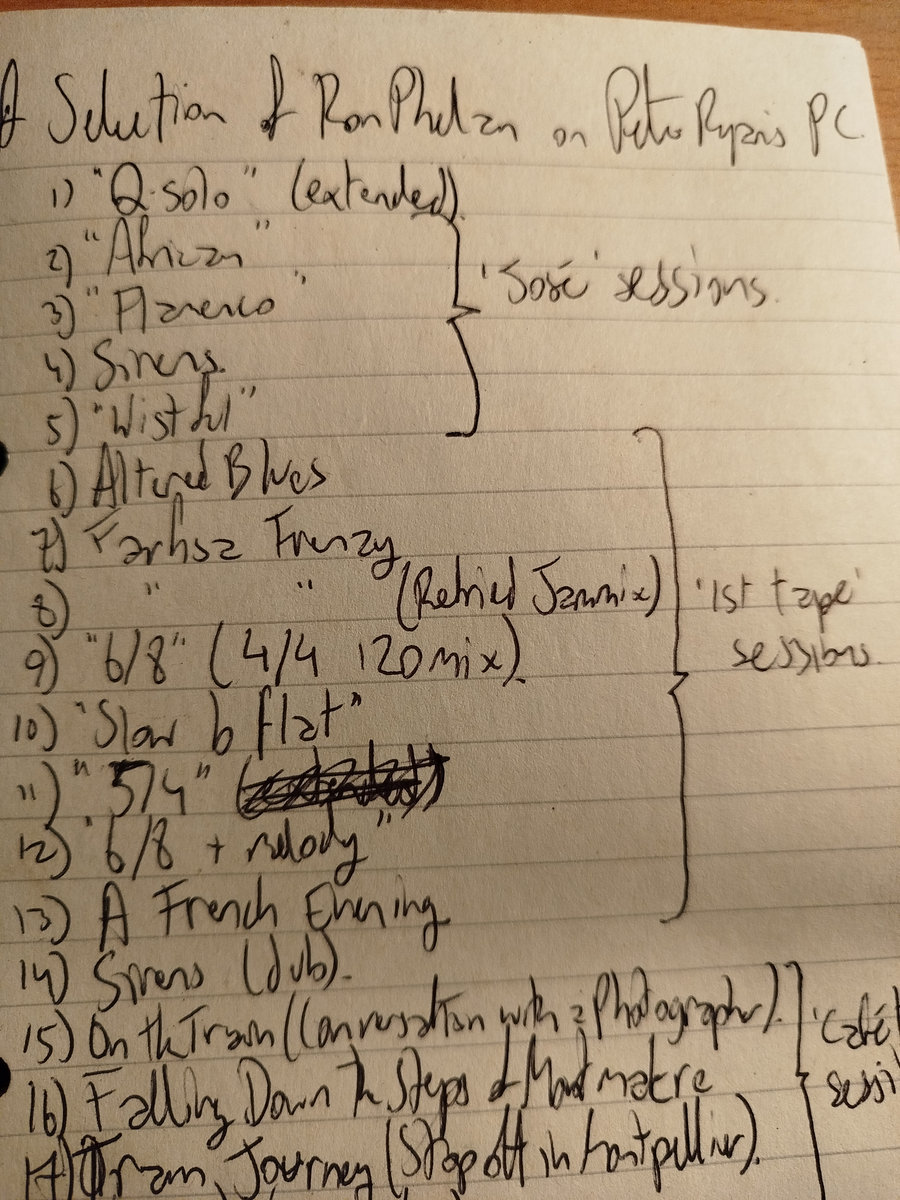 A Selection of Ron Phelan on Peter Ryan's PC.
1) "Q-solo" (extended).
2) "African"
3) "Flamenco"
'José' sessions.
4) Sirens.
5) "Wistful"
6) Altered Blues
7) Farfisa Frenzy
8) " " (Retried Jammix)
'1st tape' sessions.
9) "6/8" (4/4 120 mix).
10) "Slow b flat"
11) "5/4"
12) "6/8 + melody"
13) A French Evening
14) Sirens (dub).
15) On the Train (Conversation with a Photographer).
'Café'
16) Falling Down the Steps of Montmatre
sessi
17) Tram Journey (Stop off in Montpellier).